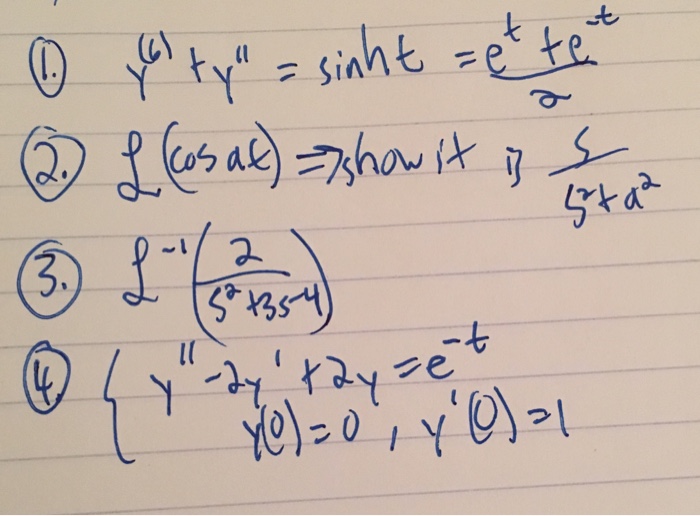 1. y^(6) + y'' = sinh t = (e^t + e^-t)/2
2. ℒ(cos at) ⇒ show it is s/(s² + a²)
3. ℒ^-1(2/(s² + 3s - 4))
4. { y'' - 2y' + 2y = e^-t
y(0) = 0, y'(0) = 1